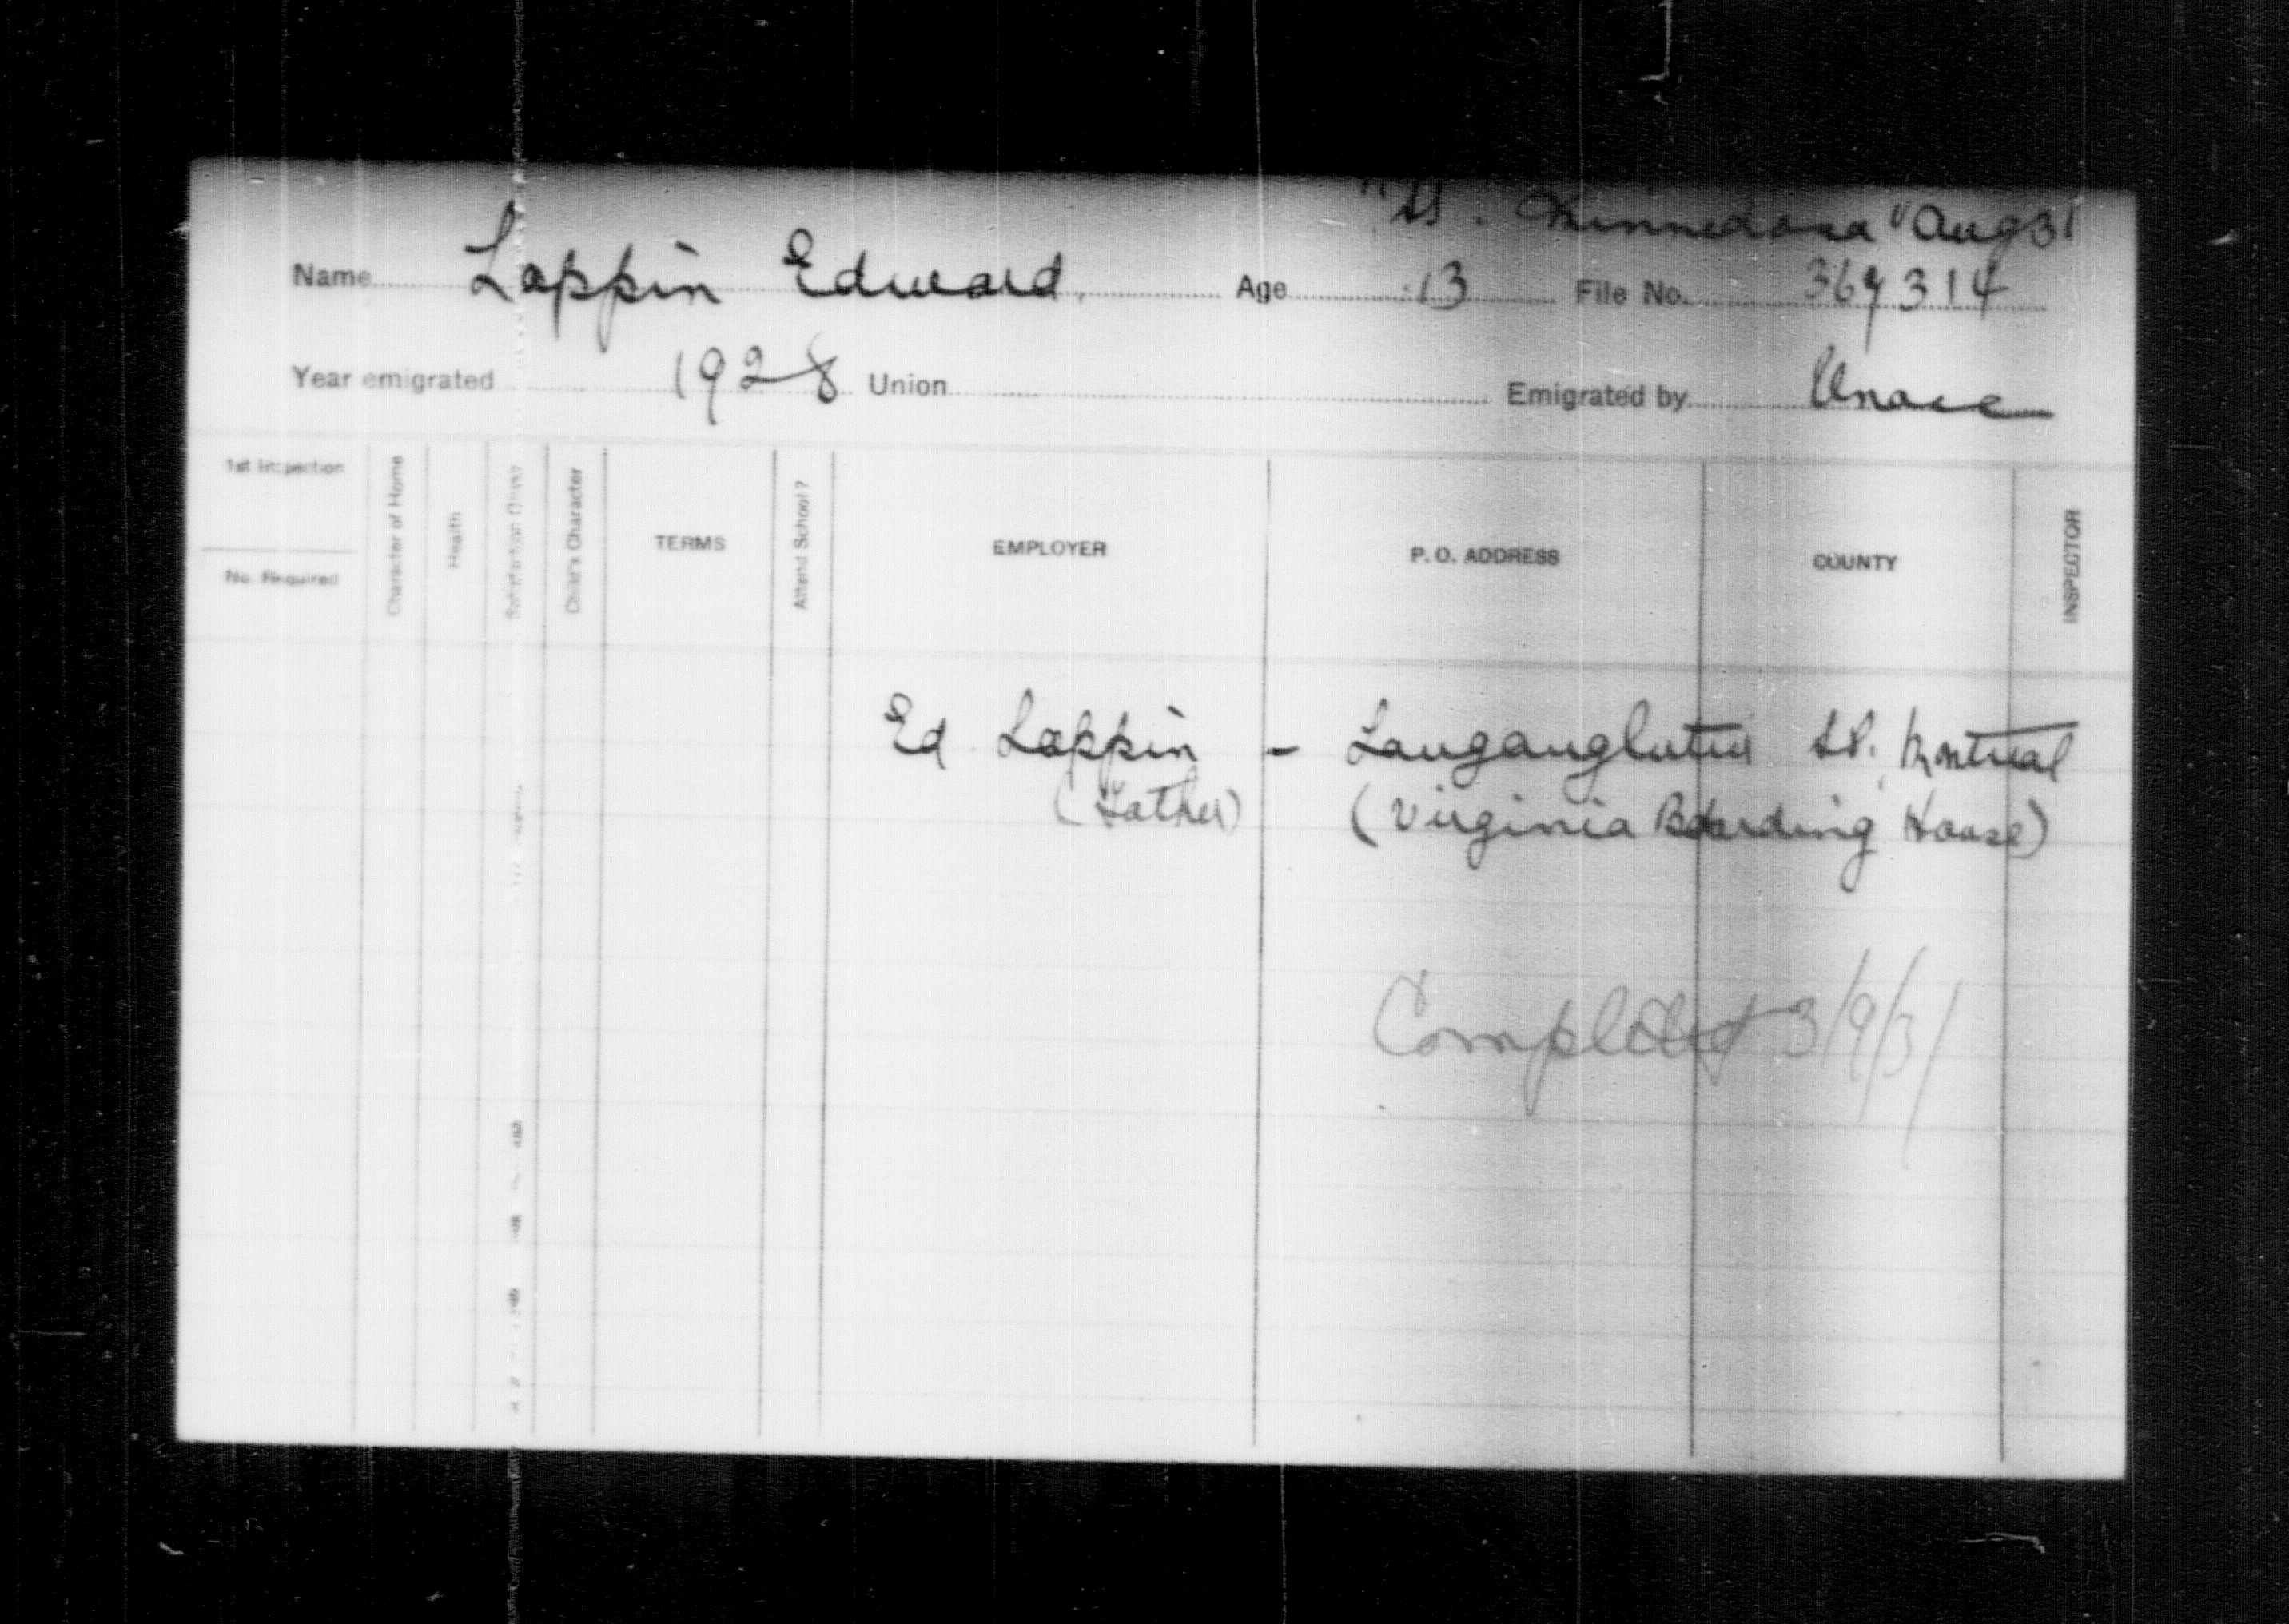 "SS. Minnedosa" Aug 31
Name Loppin Edward Age 13 File No. 367314
Year emigrated 1928 Union Emigrated by Unacc
1st Inspection
No. Required
Character of Home
Health
Satisfaction Given?
Child's Character
TERMS
Attend School?
EMPLOYER
P. O. ADDRESS
COUNTY
INSPECTOR
Ed Loppin - St. Montreal
(Father) (Virginia Boarding House)
Completed 3/9/31